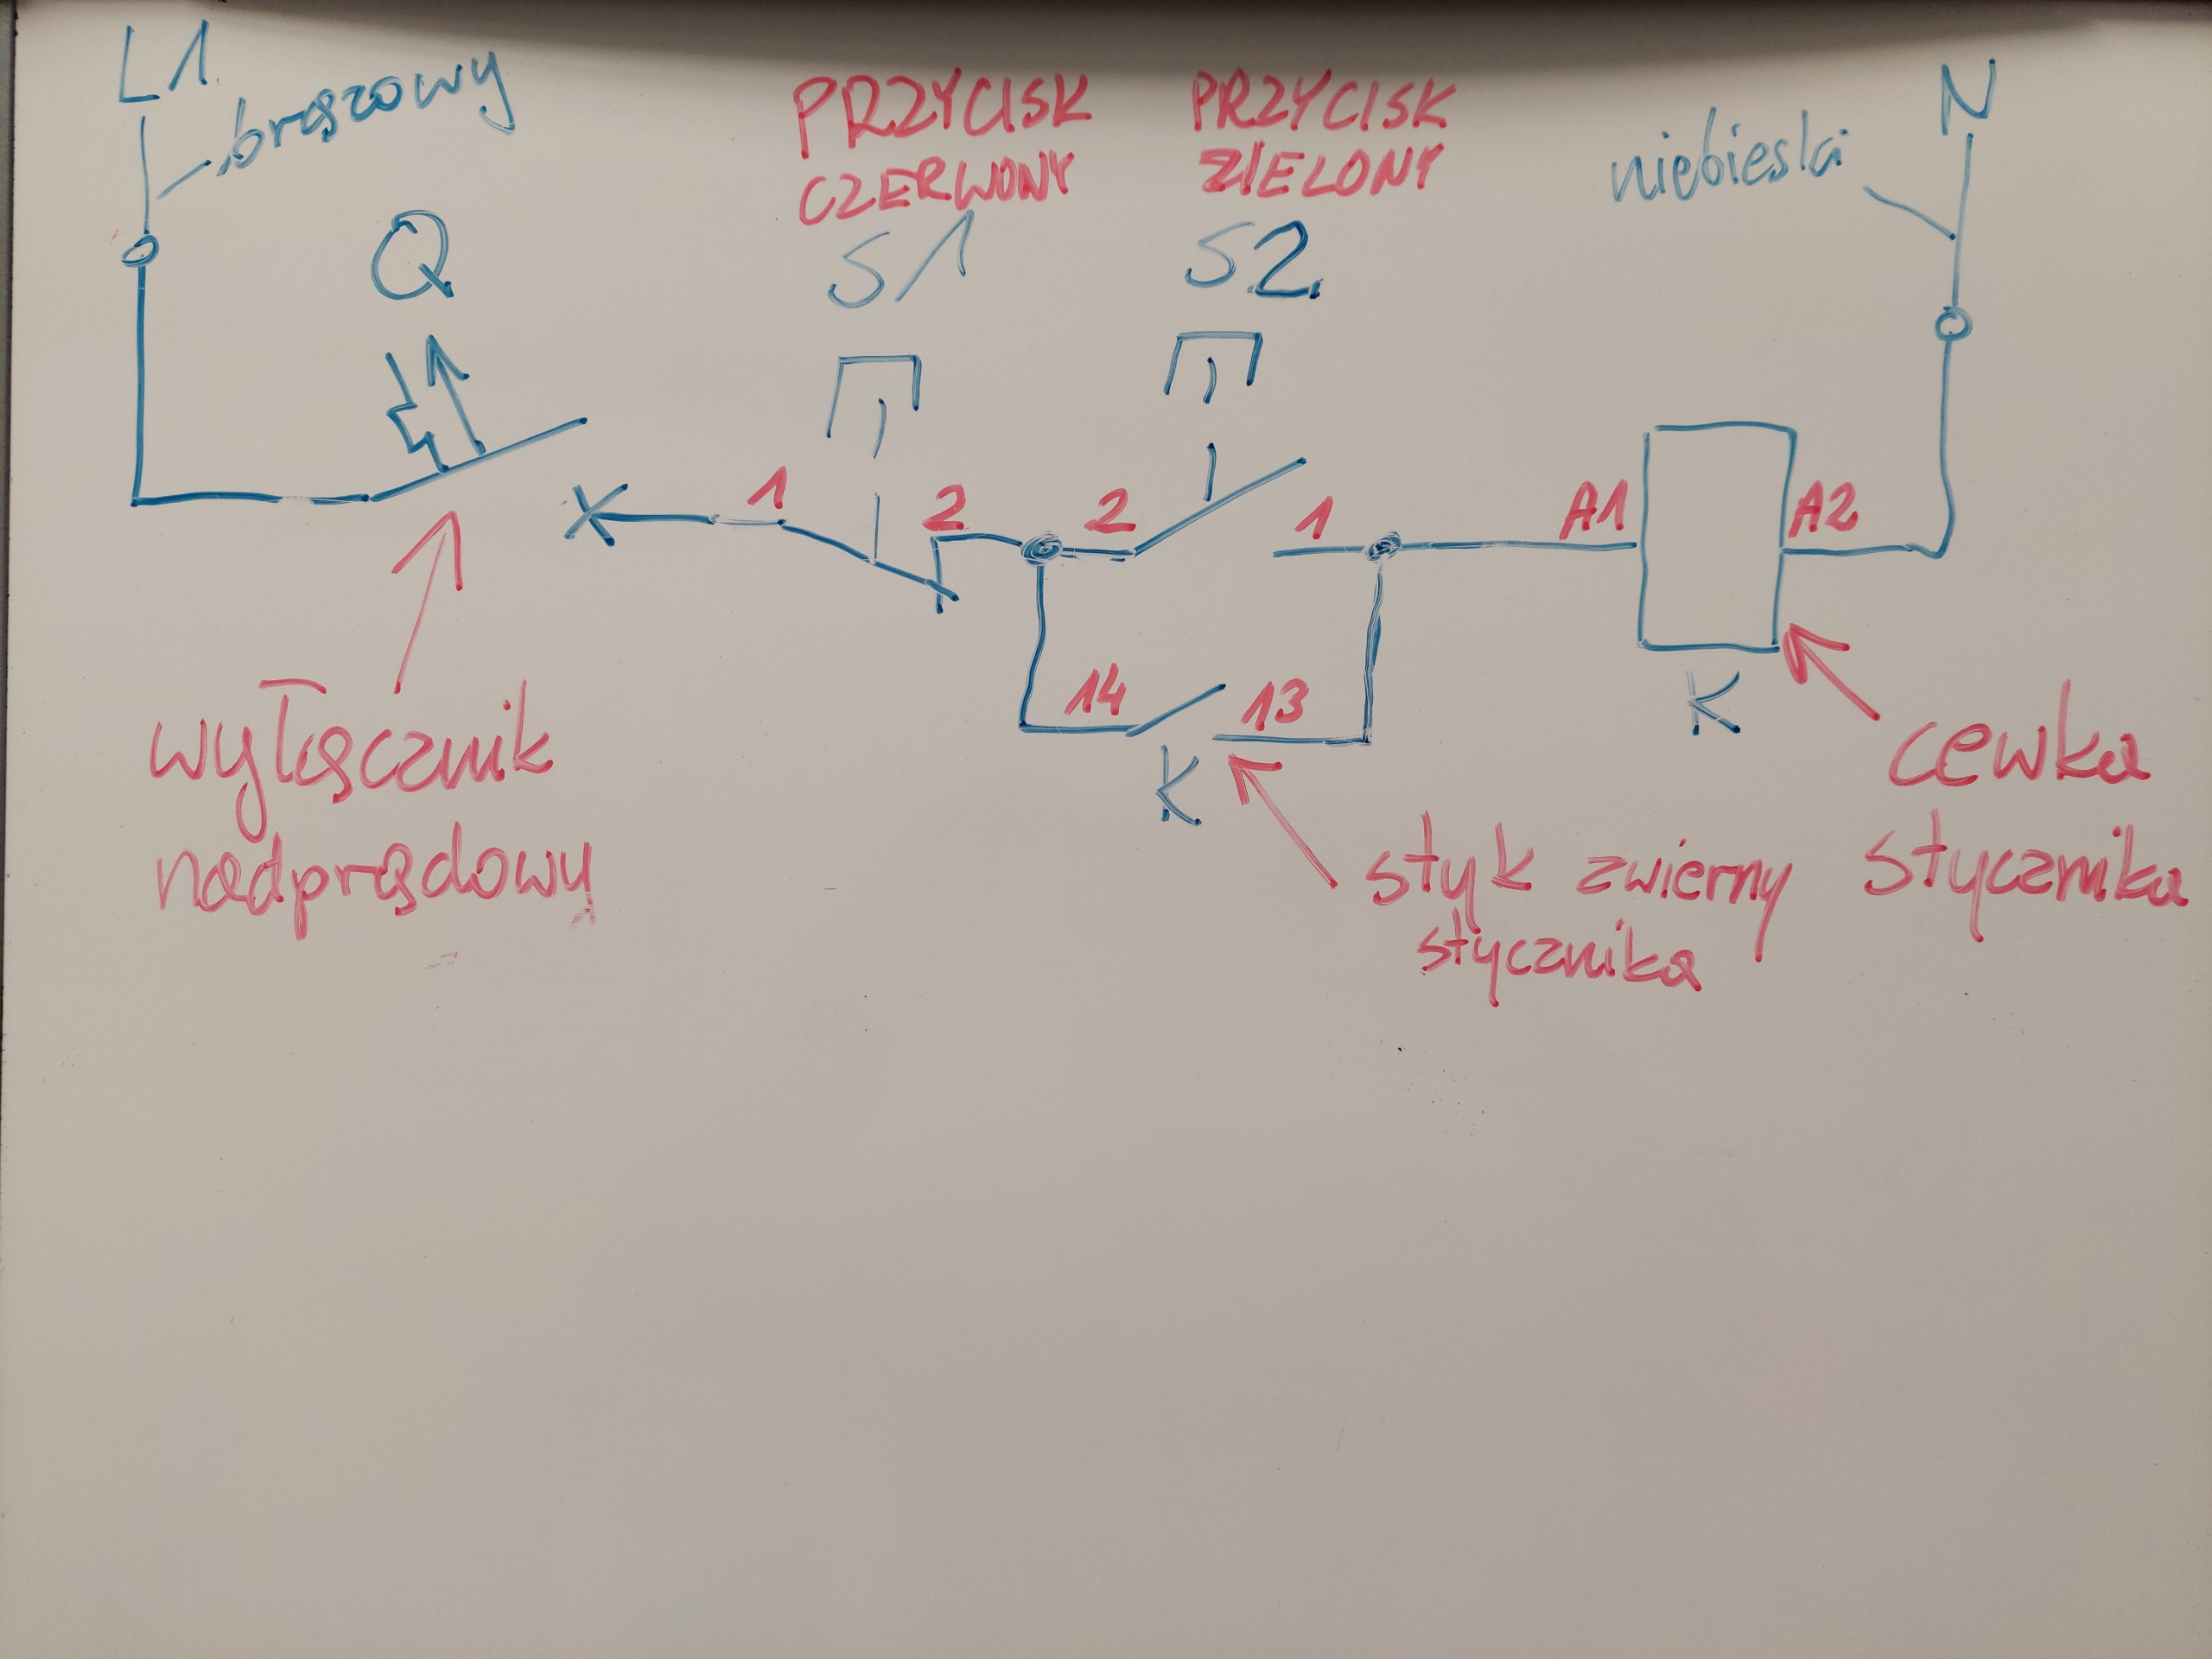 L1
brązowy
PRZYCISK
CZERWONY
S1
PRZYCISK
ZIELONY
S2
niebieski
N
Q
1
2
2
1
A1
A2
14
13
K
K
wyłącznik
nadprądowy
styk zwierny
stycznika
cewka
stycznika